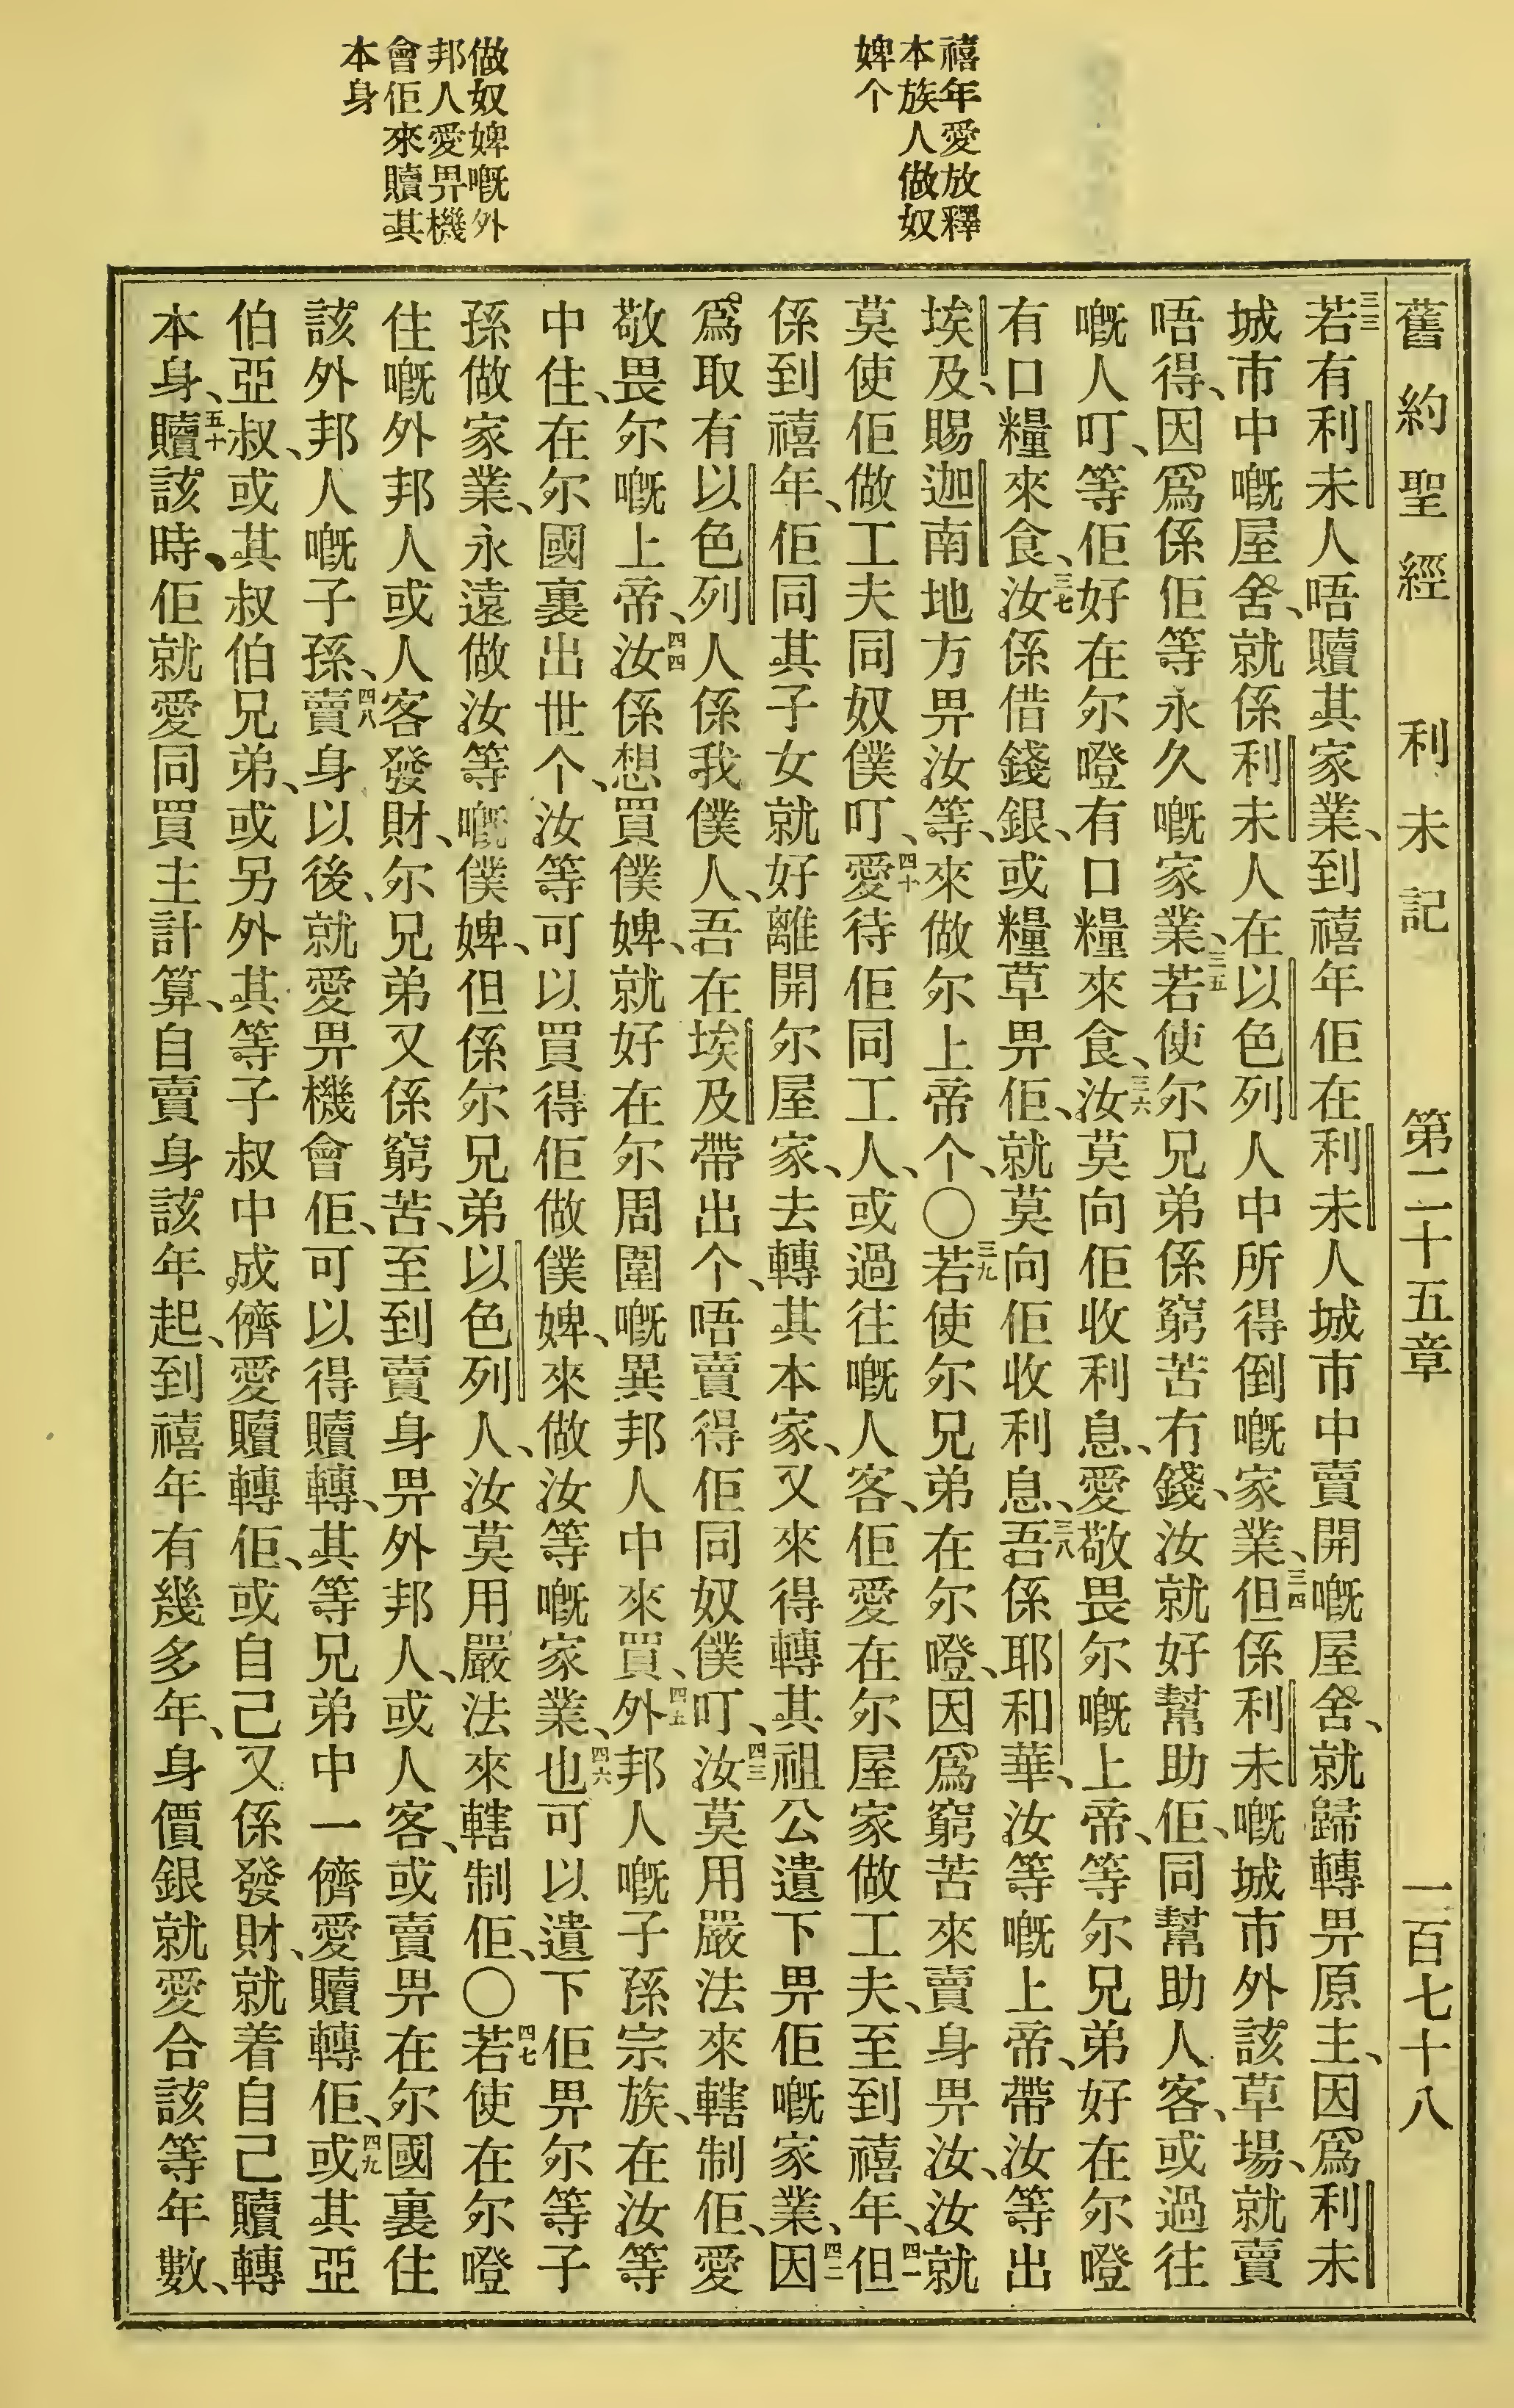 禧年愛放釋
本族人做奴
婢个
做奴婢嘅外
邦人愛畀機
會佢來贖其
本身
舊約聖經 利未記 第二十五章 一百七十八
三三若有利未人唔贖其家業、到禧年佢在利未人城市中賣開嘅屋舍、就歸轉畀原主、因爲利未
城市中嘅屋舍、就係利未人在以色列人中所得倒嘅家業、三四但係利未嘅城市外該草場、就賣
唔得、因爲係佢等永久嘅家業、三五若使尔兄弟係窮苦冇錢、汝就好幫助佢、同幫助人客、或過往
嘅人叮、等佢好在尔嶝有口糧來食、三六汝莫向佢收利息、愛敬畏尔嘅上帝、等尔兄弟好在尔嶝
有口糧來食、三七汝係借錢銀、或糧草畀佢、就莫向佢收利息、三八吾係耶和華、汝等嘅上帝、帶汝等出
埃及、賜迦南地方畀汝等、來做尔上帝个、〇三九若使尔兄弟在尔嶝、因爲窮苦來賣身畀汝、汝就
莫使佢做工夫同奴僕叮、四十愛待佢同工人、或過往嘅人客、佢愛在尔屋家做工夫、至到禧年、四一但
係到禧年、佢同其子女就好離開尔屋家、去轉其本家、又來得轉其祖公遺下畀佢嘅家業、四二因
爲取有以色列人係我僕人、吾在埃及帶出个、唔賣得佢同奴僕叮、四三汝莫用嚴法來轄制佢、愛
敬畏尔嘅上帝、四四汝係想買僕婢、就好在尔周圍嘅異邦人中來買、四五外邦人嘅子孫宗族、在汝等
中住、在尔國裏出世个、汝等可以買得佢做僕婢、來做汝等嘅家業、四六也可以遺下佢畀尔等子
孫做家業、永遠做汝等嘅僕婢、但係尔兄弟以色列人、汝莫用嚴法來轄制佢、〇四七若使在尔嶝
住嘅外邦人或人客發財、尔兄弟又係窮苦、至到賣身畀外邦人、或人客、或賣畀在尔國裏住
該外邦人嘅子孫、四八賣身以後、就愛畀機會佢、可以得贖轉、其等兄弟中一儕愛贖轉佢、四九或其亞
伯亞叔、或其叔伯兄弟、或另外其等子叔中成儕愛贖轉佢、或自己又係發財、就着自己贖轉
本身、五十贖該時、佢就愛同買主計算、自賣身該年起、到禧年有幾多年、身價銀就愛合該等年數、